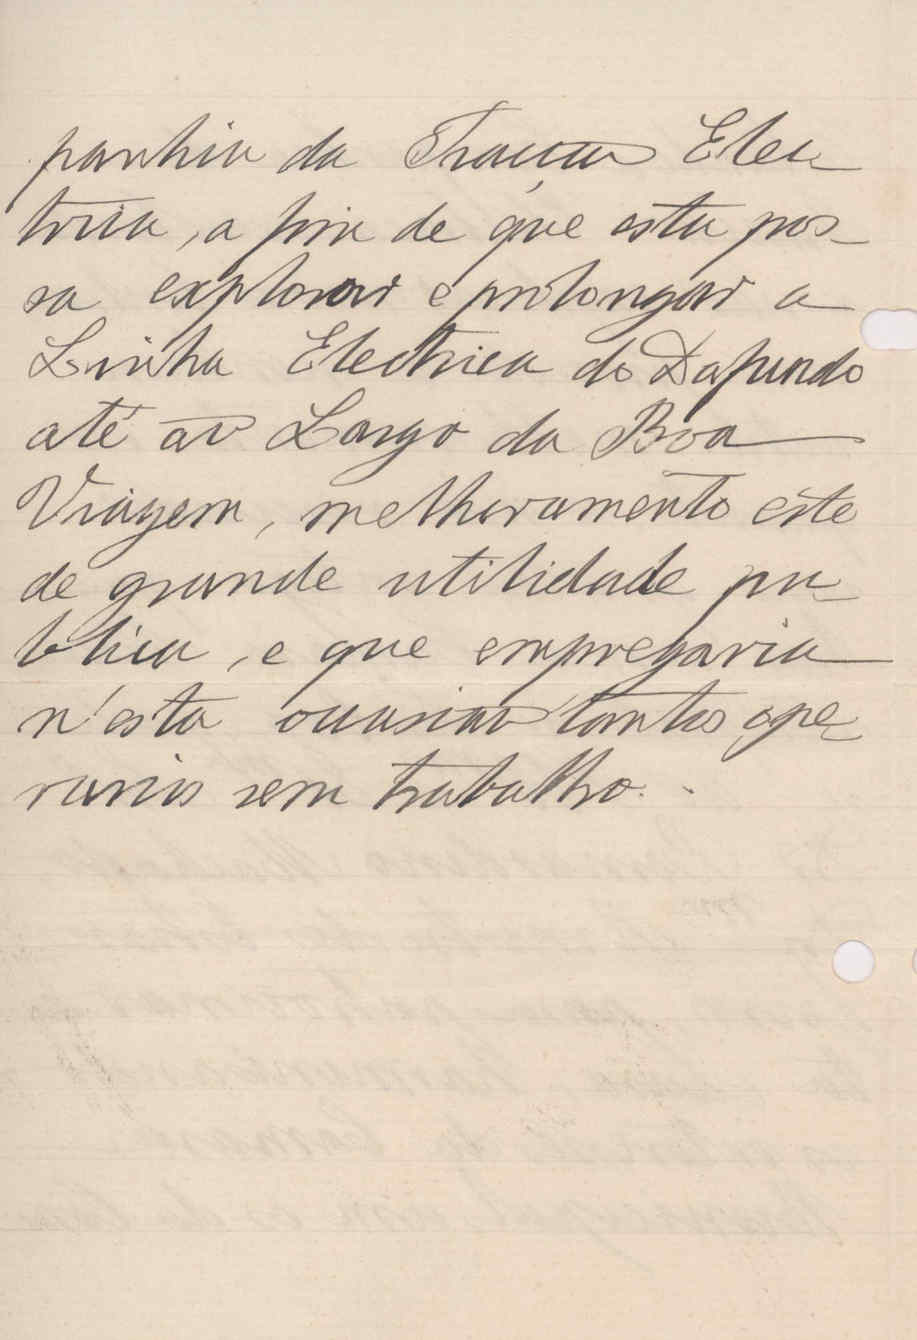 panhia da Tracção Elec-
trica, a fim de que esta pos-
sa explorar e prolongar a
Linha Electrica do Dafundo
até ao Largo da Boa
Viagem, melhoramento este
de grande utilidade pu-
blica, e que empregaria
n'esta occasião tantos ope-
rarios sem trabalho.